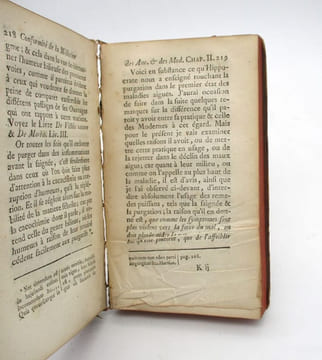 218 Conformité de la Médecine
gne; & cela dans la vue
ner l'humeur bilieuse des premieres
voies, comme il paroitra évident
à ceux qui voudront se donner la
peine de comparer ensemble les
différens passages de ses Ouvrages
qui ont rapport à cette matiere.
Voyez le Livre De Visus ratione
& De Morbis Lib. III.
Or toutes les fois qu'il ordonne
de purger dans des inflammations
avant la saignée, c'est seulement
dans ceux où l'on doit faire plus
d'attention à la cacochymie ou cor-
ruption d'humeurs, qu'à la
Et il se régloit alors sur la
bilité de la matiere
la cacochymie dont il parle;
rend celle des
humeurs à raison de leur
cédent facilement aux purgatifs.
des Anc. & des Mod. CHAP. II. 219
Voici en substance ce qu'Hippo-
crate nous a enseigné touchant la
purgation dans le premier état des
maladies aiguës. J'aurai occasion
de faire dans la suite quelques re-
marques sur la différence qu'il pa-
roît y avoir entre sa pratique & celle
des Modernes à cet égard. Mais
pour le présent je vais examiner
quelles raisons il avoit, ou de met-
tre cette pratique en usage, ou de
la rejetter dans le déclin des maux
aigus; car quant à leur milieu, ou
comme on l'appelle au plus haut de
la maladie, il est d'avis, ainsi que
je l'ai observé ci-devant, d'inter-
dire absolument l'usage des reme-
des puissans, tels que la saignée &
la purgation; la raison qu'il en don-
ne est, que comme les symptomes sont
plus violens vers le faîte du mal, on
doit plutôt
que de l'affoiblir
pag. 268.
K ij